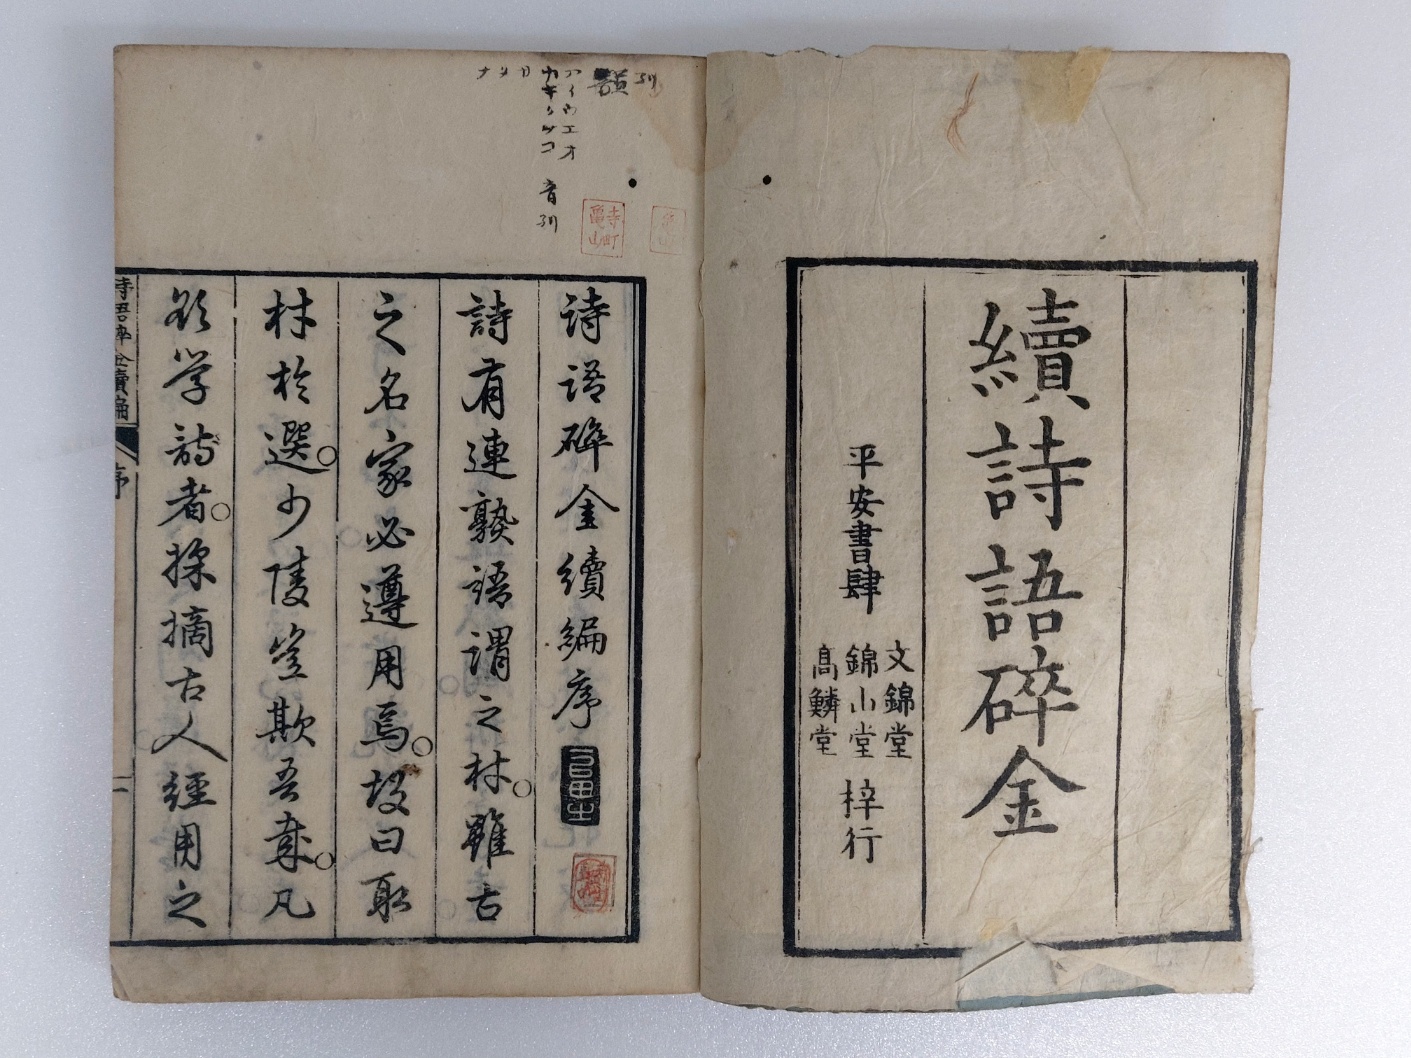 續詩語碎金
平安書肆
文錦堂
錦山堂
髙鱗堂
梓行
詩語碎金續編序
詩有連熟語謂之材雖古
之名家必遵用焉故曰取
材於選少陵豈欺吾哉凡
欲学詩者採摘古人經用之
詩語碎金續編
序
一
アイウエオ
カキクケコ
音
寺町
亀山